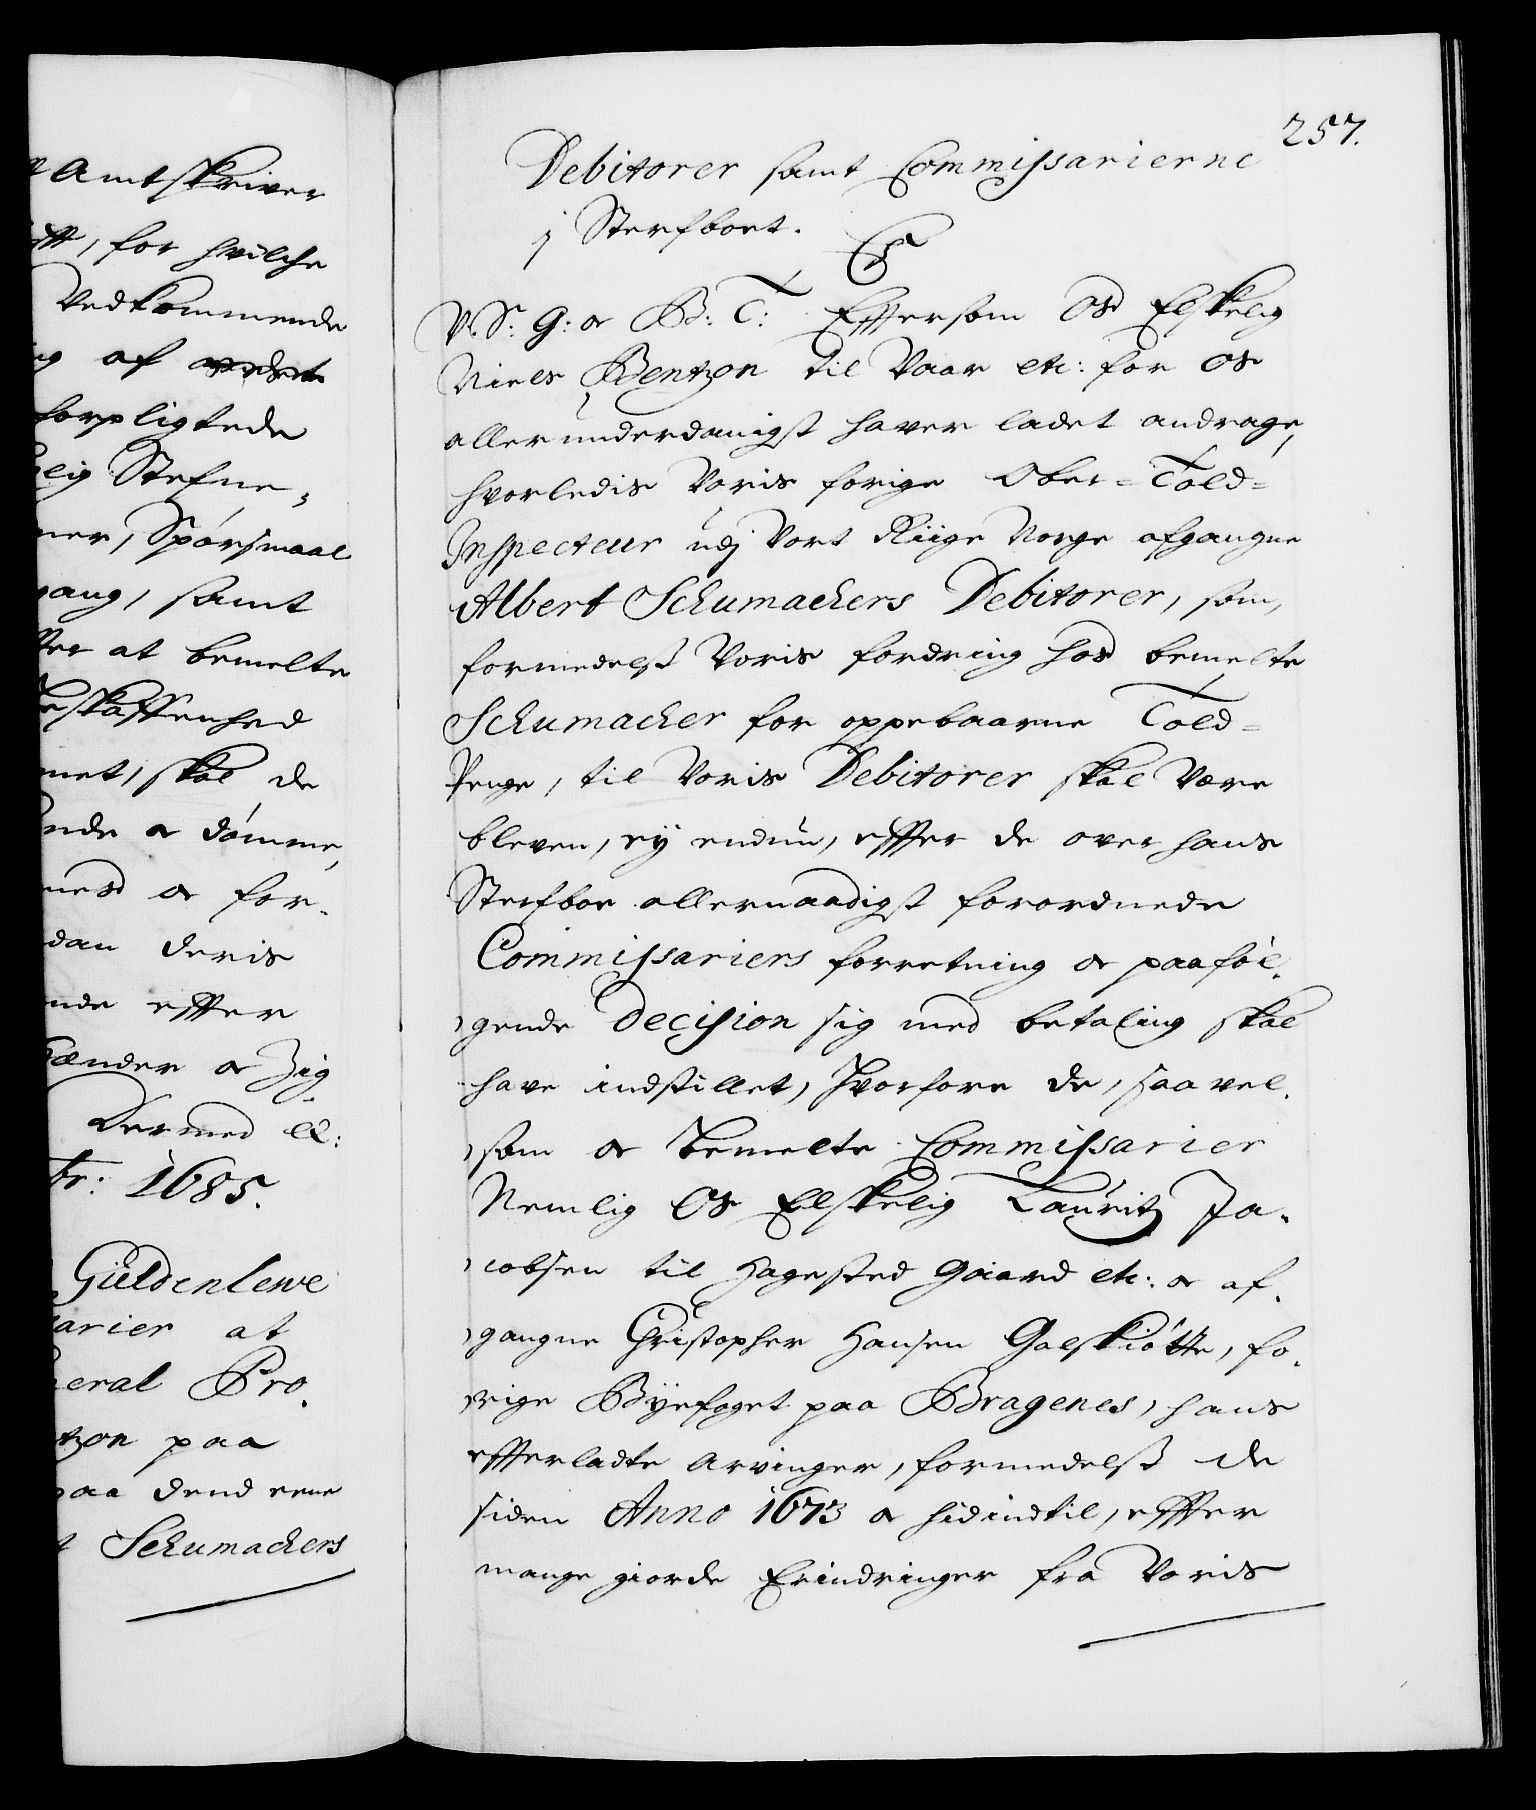 Amtskriver
for hvilche
Vedkommende
af
forpligtede
Stefne-
Spørsmaal
samt
at bemelte
beskaffenhed
skal de
a dømme,
a for-
deris
effter
hænder a Zig
Dermed etc:
1685.
Güldenlewe
at
Pro-
paa
dend eene
Schumachers
257.
Debitorer samt Commissarierne
j Sterfboet.
C5
V. S: G: a B: T: Effersom Os Elskelig
Niels Bentzon til Vaar etc: for os
allerunderdanigst haver ladet andrage,
hvorledis Voris forige Ober-Told-
Inspecteur udj Vort Riige Norge afgangne
Albert Schumachers Debitorer, som,
formedelst Voris fordring hos bemelte
Schumacher for oppebaarne Told-
Penge, til Voris Debitorer skal Være
bleven, ey endnu, effter de over hans
Sterfboe allernaadigst forordnede
Commissariers forretning a paaføl-
gende Decision sig med betaling skal
have indstillet, Hvorfore de, saavel-
som a bemelte Commissarier
Nemlig Os Elskelig Lauritz Ja-
cobsen til Hagested Gaard etc: a af-
gangne Christopher Hansen Galskiøtte, fo-
rige Byefoget paa Bragenes, hans
effterladte Arvinger, formedelst de
siden Anno 1673 a hidindtil, effter
mange giorde Erindringer fra Voris